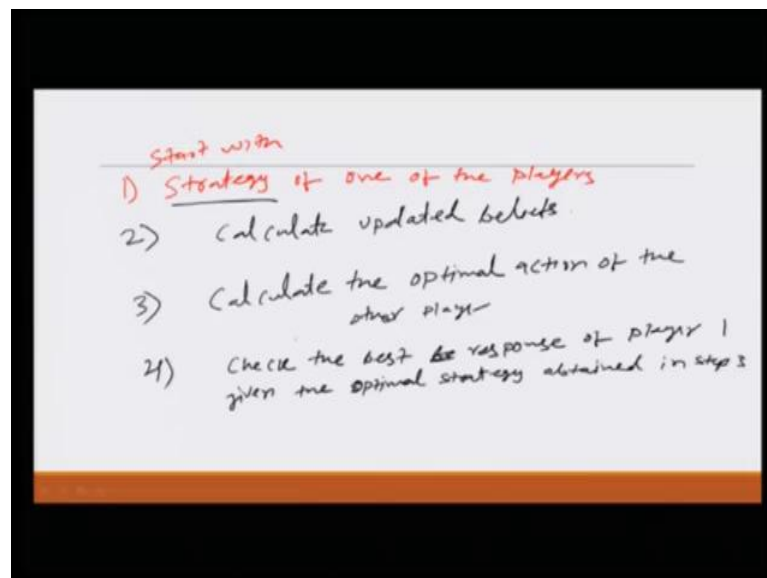 Start with
1) Strategy of one of the players
2) Calculate updated beliefs.
3) Calculate the optimal action of the
other player
4) Check the best response of player 1
given the optimal strategy obtained in step 3